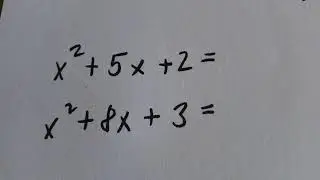 x² + 5x + 2 =
x² + 8x + 3 =